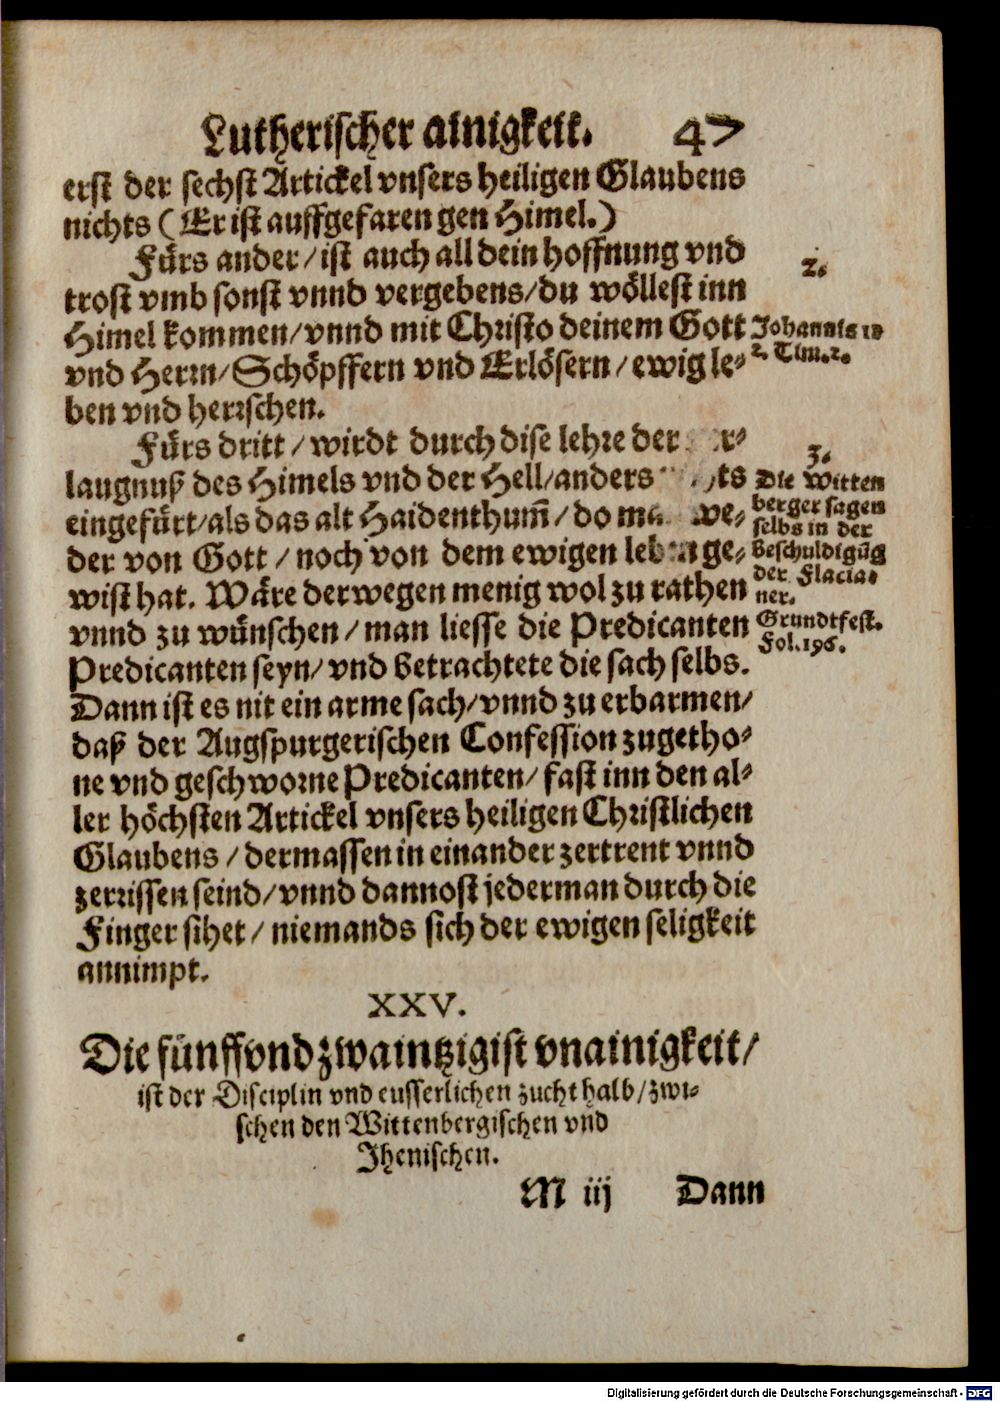 Lutherischer ainigkeit. 47
erst der sechst Artickel vnsers heiligen Glaubens
nichts (Er ist auffgefaren gen Himel.)
Fürs ander/ist auch all dein hoffnung vnd
2.
trost vmb sonst vnnd vergebens/du wöllest inn
Himel kommen/vnnd mit Christo deinem Gott
Johannis
2. Tim. 2.
vnd Herrn/Schöpffern vnd Erlösern/ewig le-
ben vnd herrschen.
Fürs dritt/wirdt durch dise lehre der
3.
laugnuß des Himels vnd der Hell/anders
eingefürt/als das alt Haidenthum̃/do
der von Gott/noch von dem ewigen ge-
Die Witten
berger sagen
selbs in der
Beschuldigũg
der Flacia-
ner.
wist hat. Wäre derwegen menig wol zu rathen
vnnd zu wünschen/man liesse die Predicanten
Grundtfest.
Fol. 196.
Predicanten seyn/vnd betrachtete die sach selbs.
Dann ist es nit ein arme sach/vnnd zu erbarmen/
daß der Augspurgerischen Confession zugetho-
ne vnd geschworne Predicanten/fast inn den al-
ler höchsten Artickel vnsers heiligen Christlichen
Glaubens/dermassen in einander zertrent vnnd
zerrissen seind/vnnd dannost jederman durch die
Finger sihet/niemands sich der ewigen seligkeit
annimpt.
XXV.
Die fünffvndzwaintzigist vnainigkeit/
ist der Disciplin vnd eusserlichen zucht halb/zwi-
schen den Wittenbergischen vnd
Jhenischen.
M iij Dann
Digitalisierung gefördert durch die Deutsche Forschungsgemeinschaft - DFG